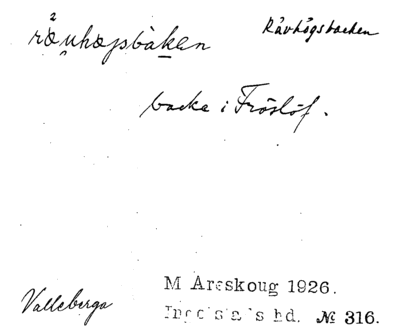 rævhøgsbakan Råvhögsbacken
backe i Fröslöf.
Valleberga
M Areskoug 1926.
hd. № 316.